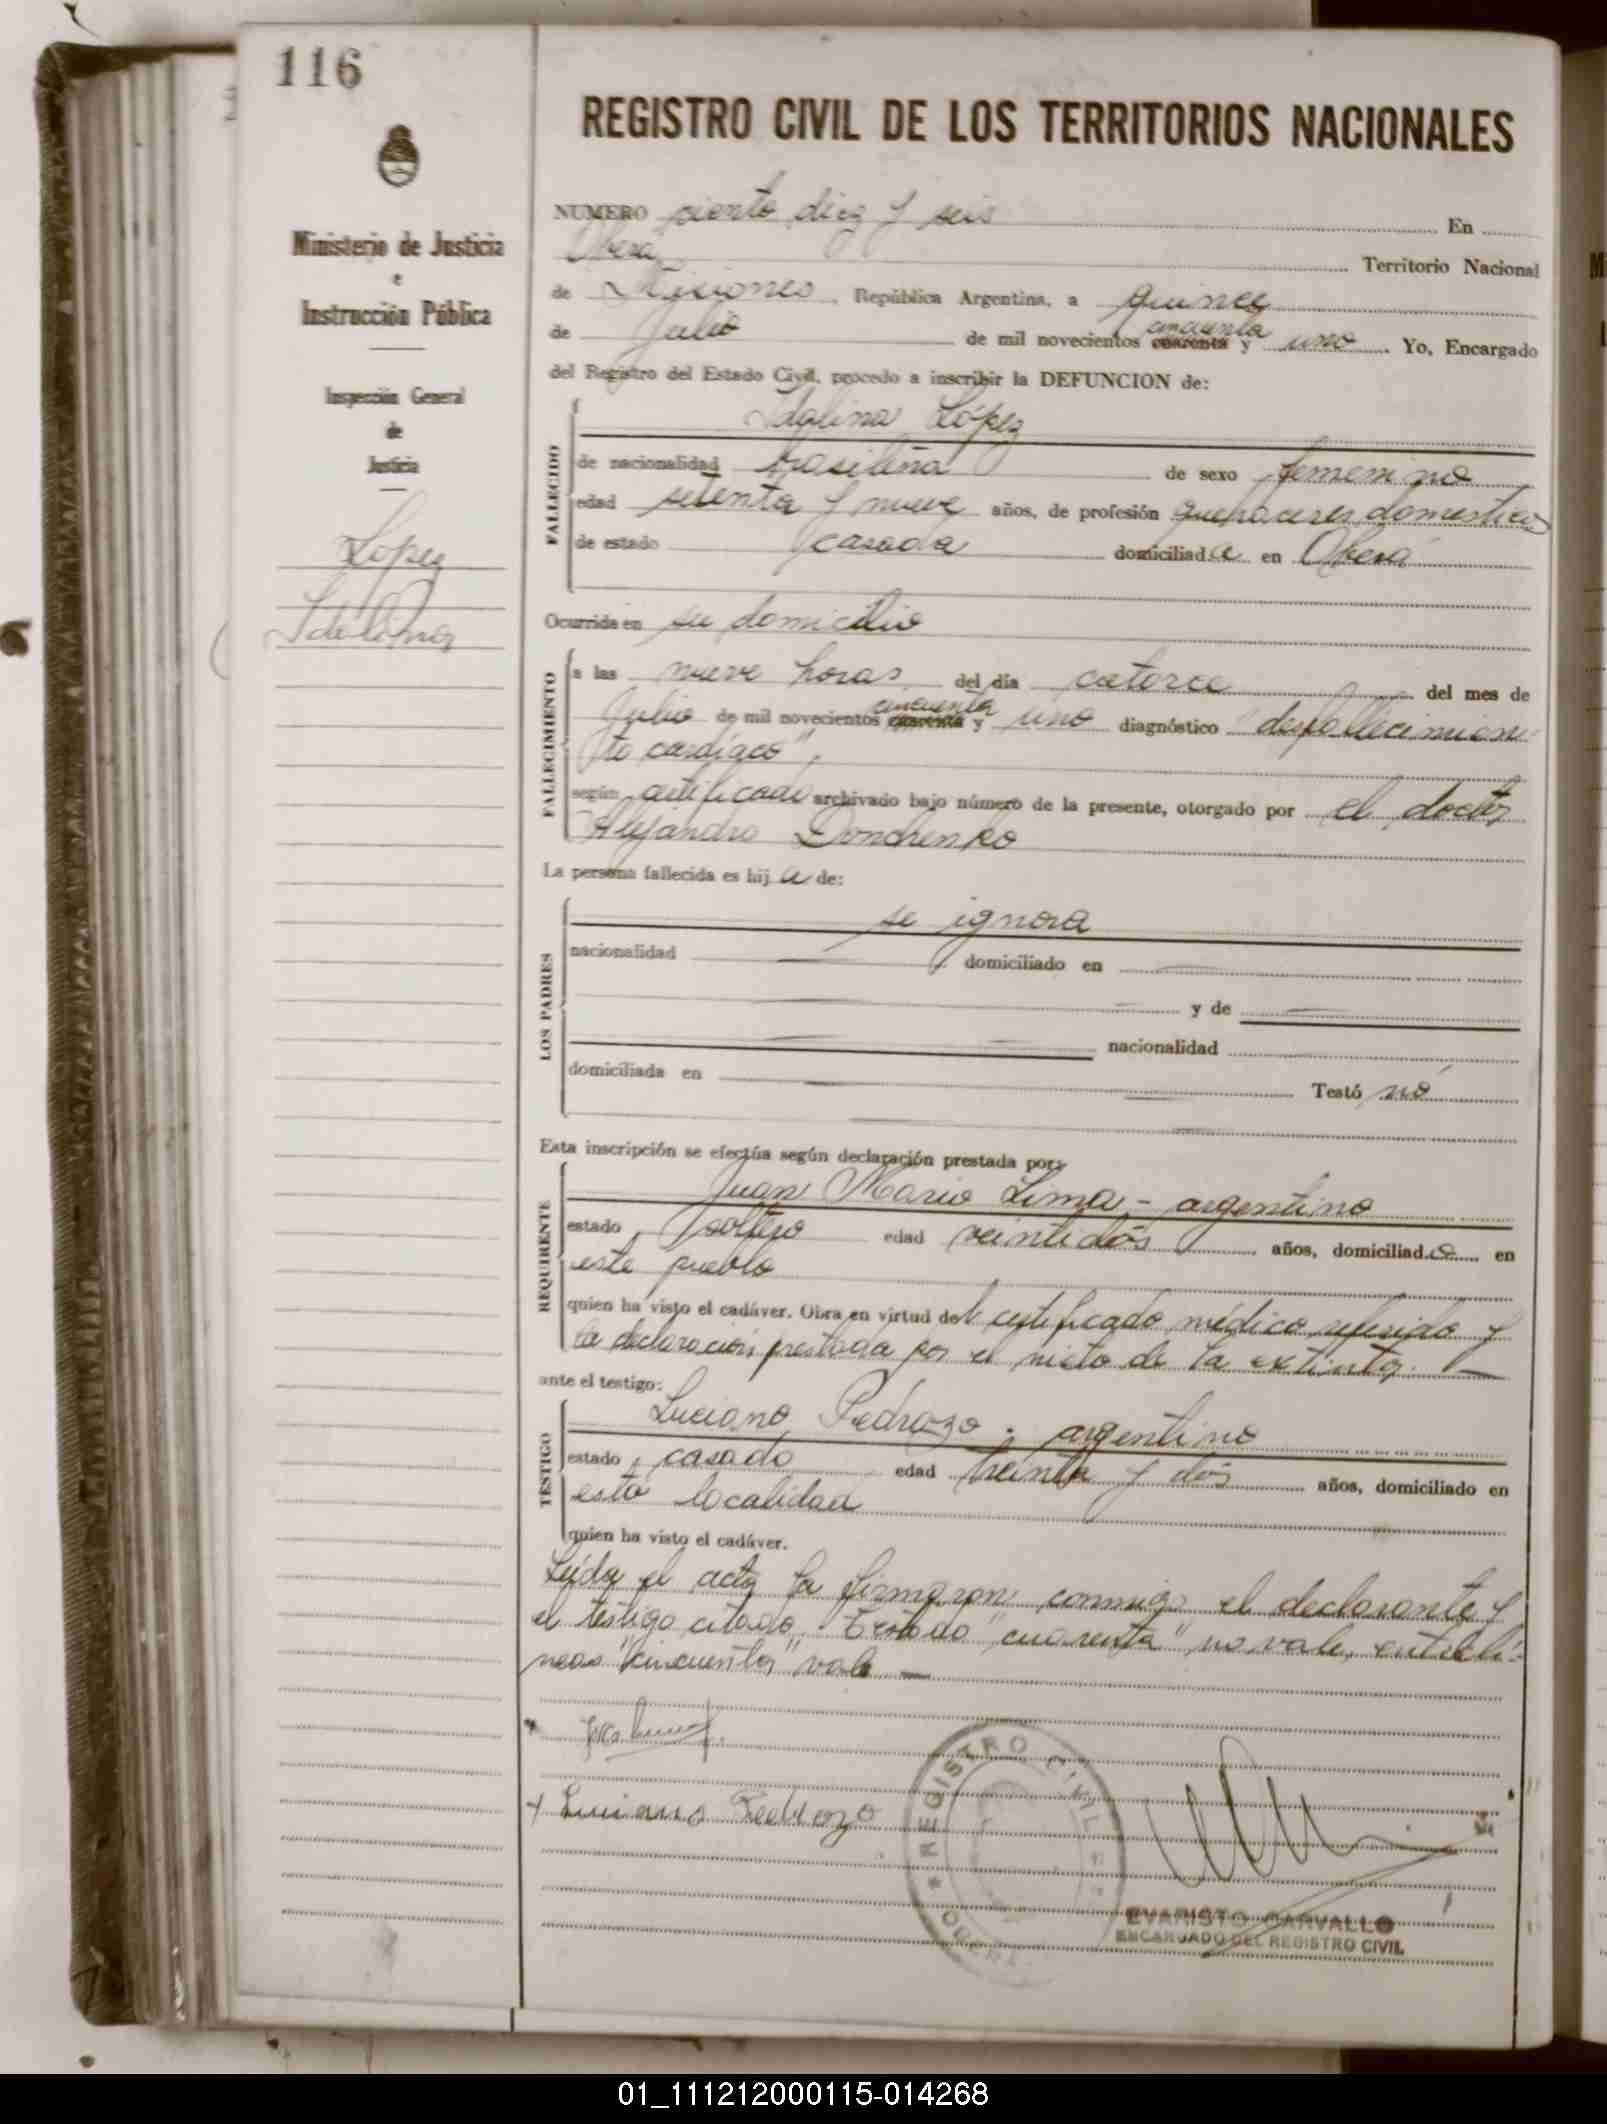 116
REGISTRO CIVIL DE LOS TERRITORIOS NACIONALES
Ministerio de Justicia
e
Instrucción Pública
Inspección General
de
Justicia
Lopez
Idelina
NUMERO ciento diez y seis En
Obera Territorio Nacional
de Misiones, República Argentina, a quince
de Julio de mil novecientos cuarenta cincuenta y uno. Yo, Encargado
del Registro del Estado Civil, procedo a inscribir la DEFUNCION de:
FALLECIDO
Idalina López
de nacionalidad brasileña de sexo femenino
edad setenta y nueve años, de profesión quehaceres domesticos
de estado casada domiciliada en Oberá
Ocurrida en su domicilio
FALLECIMIENTO
a las nueve horas del día catorce del mes de
Julio de mil novecientos cuarenta cincuenta y uno diagnóstico "desfallecimien-
to cardíaco",
según certificado archivado bajo número de la presente, otorgado por el doctor
Alejandro Dondrenko
La persona fallecida es hija de:
LOS PADRES
se ignora
nacionalidad domiciliado en
y de
nacionalidad
domiciliada en Testó nó
Esta inscripción se efectúa según declaración prestada por:
REQUIRENTE
Juan Mario Lima - argentino
estado soltero edad veintidós años, domiciliado en
este pueblo
quien ha visto el cadáver. Obra en virtud del certificado médico referido y
la declaración prestada por el nieto de la extinta.
ante el testigo:
TESTIGO
Luciano Pedrozo. argentino
estado casado edad treinta y dós años, domiciliado en
esta localidad
quien ha visto el cadáver.
Leída el acta la firmaron conmigo el declarante y
el testigo citado. Testado "cuarenta" no vale, entreli-
neas "cincuenta" vale
Luciano Pedrozo
REGISTRO CIVIL
EVARISTO CARVALLO
ENCARGADO DEL REGISTRO CIVIL
01_111212000115-014268